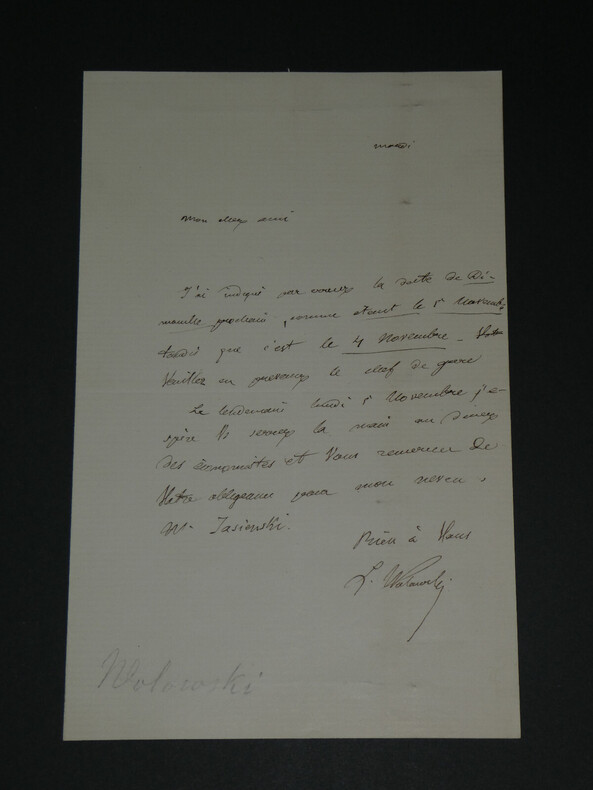 mardi
Mon cher ami
J'ai indiqué par erreur la date de Di-
manche prochain, comme étant le 5 Novembre,
tandis que c'est le 4 Novembre.
Veuillez en prévenir le chef de gare
Le lendemain lundi 5 Novembre j'es-
père Vs serrer la main au diner
des économistes et Vous remercier de
Votre obligeance pour mon neveu,
Mr Jasienski.
Bien à Vous
L. Wolowski
Wolowski